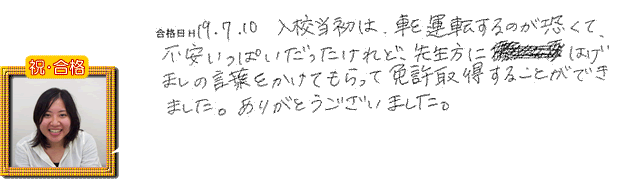 合格日H19.7.10 入校当初は、車を運転するのが恐くて、
不安いっぱいだったけれど、先生方にはげ
ましの言葉をかけてもらって免許取得することができ
ました。ありがとうございました。
祝・合格